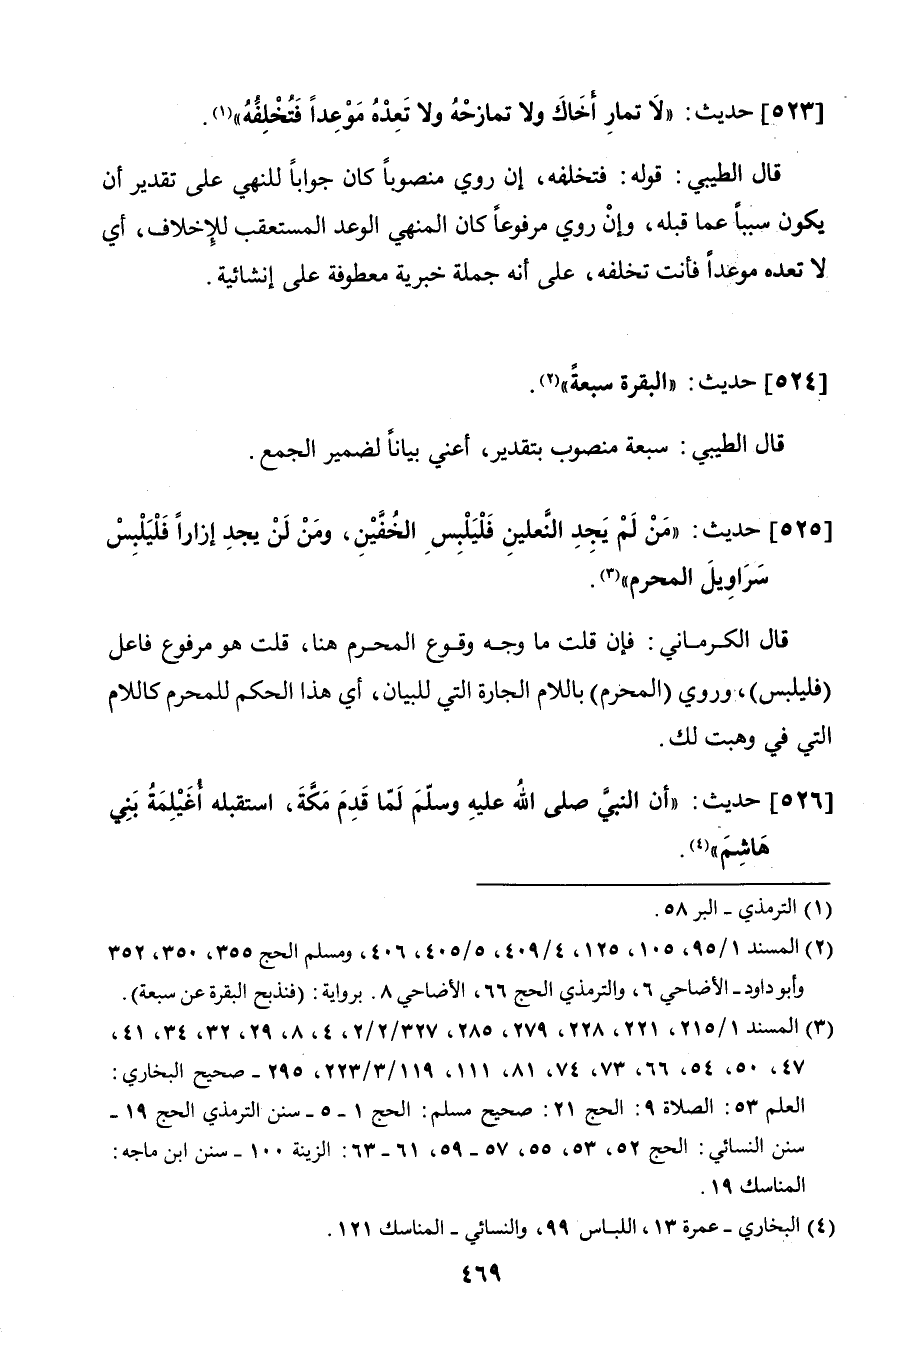 [٥٢٣] حديث: «لَا تمارِ أَخَاكَ ولا تمازحْهُ ولا تَعِدْهُ مَوْعِداً فَتُخْلِفُهُ»(١).
قال الطيبي: قوله: فتخلفه، إن روي منصوباً كان جواباً للنهي على تقدير أن
يكون سبباً عما قبله، وإنْ روي مرفوعاً كان المنهي الوعد المستعقب للإخلاف، أي
لا تعده موعداً فأنت تخلفه، على أنه جملة خبرية معطوفة على إنشائية.
[٥٢٤] حديث: «البقرة سبعةً»(٢).
قال الطيبي: سبعة منصوب بتقدير، أعني بياناً لضمير الجمع.
[٥٢٥] حديث: «مَنْ لَمْ يَجِدِ النَّعلينِ فَلْيَلْبسِ الخُفَّيْنِ، ومَنْ لَنْ يجدِ إزاراً فَلْيَلْبِسْ
سَرَاوِيلَ المحرم»(٣).
قال الكرماني: فإن قلت ما وجه وقوع المحرم هنا، قلت هو مرفوع فاعل
(فليلبس)، وروي (المحرم) باللام الجارة التي للبيان، أي هذا الحكم للمحرم كاللام
التي في وهبت لك.
[٥٢٦] حديث: «أن النبيَّ صلى اللهُ عليهِ وسلّمَ لَمّا قَدِمَ مَكَّةَ، استقبله أُغَيْلِمَةُ بَنِي
هَاشِمَ»(٤).
(١) الترمذي ـ البر ٥٨.
(٢) المسند ٩٥/١، ١٠٥، ١٢٥، ٤٠٩/٤، ٤٠٥/٥، ٤٠٦، ومسلم الحج ٣٥٥، ٣٥٠، ٣٥٢
وأبو داود ـ الأضاحي ٦، والترمذي الحج ٦٦، الأضاحي ٨. برواية: (فنذبح البقرة عن سبعة).
(٣) المسند ٢١٥/١، ٢٢١، ٢٢٨، ٢٧٩، ٢٨٥، ٢/٢/٣٢٧، ٤، ٨، ٢٩، ٣٢، ٣٤، ٤١،
٤٧، ٥٠، ٥٤، ٦٦، ٧٣، ٧٤، ٨١، ١١١، ٢٢٣/٣/١١٩، ٢٩٥ ـ صحيح البخاري:
العلم ٥٣: الصلاة ٩: الحج ٢١: صحيح مسلم: الحج ١ ـ ٥ ـ سنن الترمذي الحج ١٩ ـ
سنن النسائي: الحج ٥٢، ٥٣، ٥٥، ٥٧ ـ ٥٩، ٦١ ـ ٦٣: الزينة ١٠٠ ـ سنن ابن ماجه:
المناسك ١٩.
(٤) البخاري ـ عمرة ١٣، اللباس ٩٩، والنسائي ـ المناسك ١٢١.
٤٦٩